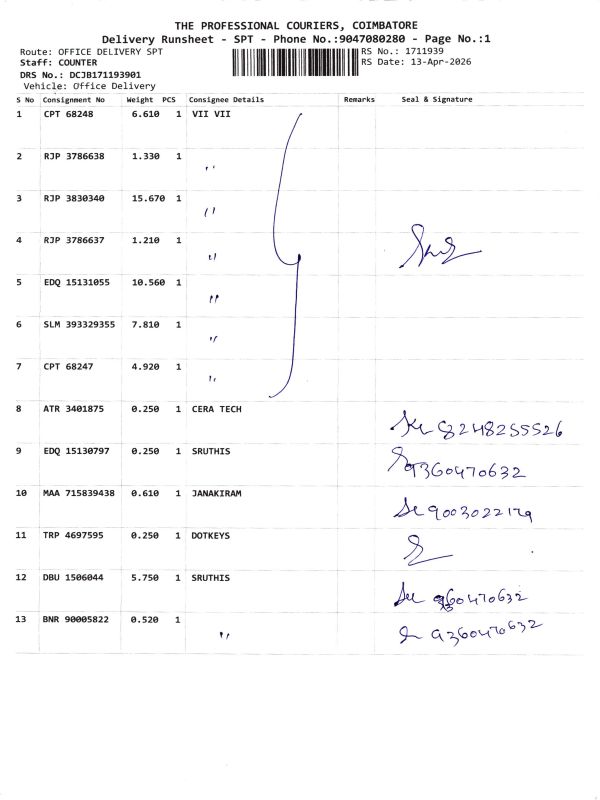 THE PROFESSIONAL COURIERS, COIMBATORE
Delivery Runsheet - SPT - Phone No.:9047080280 - Page No.:1
Route: OFFICE DELIVERY SPT RS No.: 1711939
Staff: COUNTER RS Date: 13-Apr-2026
DRS No.: DCJB171193901
Vehicle: Office Delivery
S No Consignment No Weight PCS Consignee Details Remarks Seal & Signature
1 CPT 68248 6.610 1 VII VII
2 RJP 3786638 1.330 1 "
3 RJP 3830340 15.670 1 "
4 RJP 3786637 1.210 1 "
5 EDQ 15131055 10.560 1 "
6 SLM 393329355 7.810 1 "
7 CPT 68247 4.920 1 "
8 ATR 3401875 0.250 1 CERA TECH 8248255526
9 EDQ 15130797 0.250 1 SRUTHIS 9360470632
10 MAA 715839438 0.610 1 JANAKIRAM 9003022179
11 TRP 4697595 0.250 1 DOTKEYS
12 DBU 1506044 5.750 1 SRUTHIS 9360470632
13 BNR 90005822 0.520 1 " 9360470632